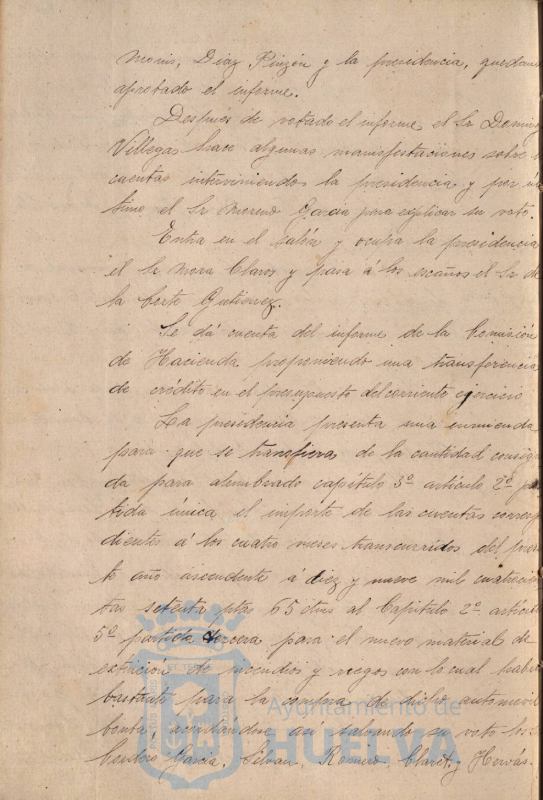 Monis, Diaz Pinzón y la presidencia, quedando
aprobado el informe.
Después de votado el informe el Sr Domin
Villegas hace algunas manifestaciones sobre
cuentas interviniendo la presidencia y por úl
timo el Sr Moreno García para explicar su voto.
Entra en el salón y ocupa la presidencia
el Sr Mora Claros y pasa á los escaños el Sr de
la Corte Gutierrez.
Se dá cuenta del informe de la Comisión
de Hacienda proponiendo una transferencia
de crédito en el presupuesto del corriente ejercicio
La presidencia presenta una enmienda
para que se transfiera de la cantidad consig
da para alumbrado capítulo 3º artículo 2º par
tida única el importe de las cuentas corresp
dientes á los cuatro meses transcurridos del prese
te año ascendente á diez y nueve mil cuatrocie
tas setenta ptas 65 ctms al Capitulo 2º artículo
5º partida tercera para el nuevo material de
extinción de incendios y riegos con lo cual habrá
bastante para la compra de dicho automovil
bomba, acordandose así salvando su voto los
García, Silvan, Romero, Claret y Hervás.
Ayuntamiento de
HUELVA